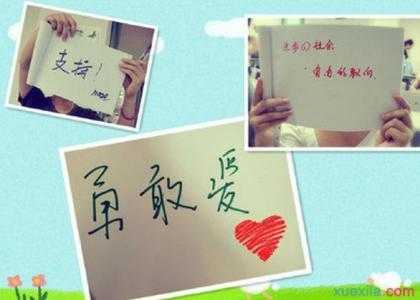 支持！
进步的社会
自由的取向
勇敢爱
xuexila.com